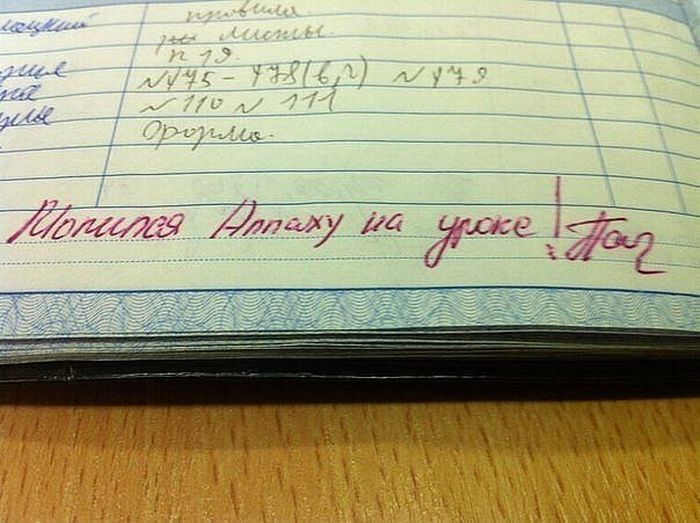 правила.
листы.
п 19.
№475-478(в,г) №479
№110 №111
Форма.
Молился Аллаху на уроке!